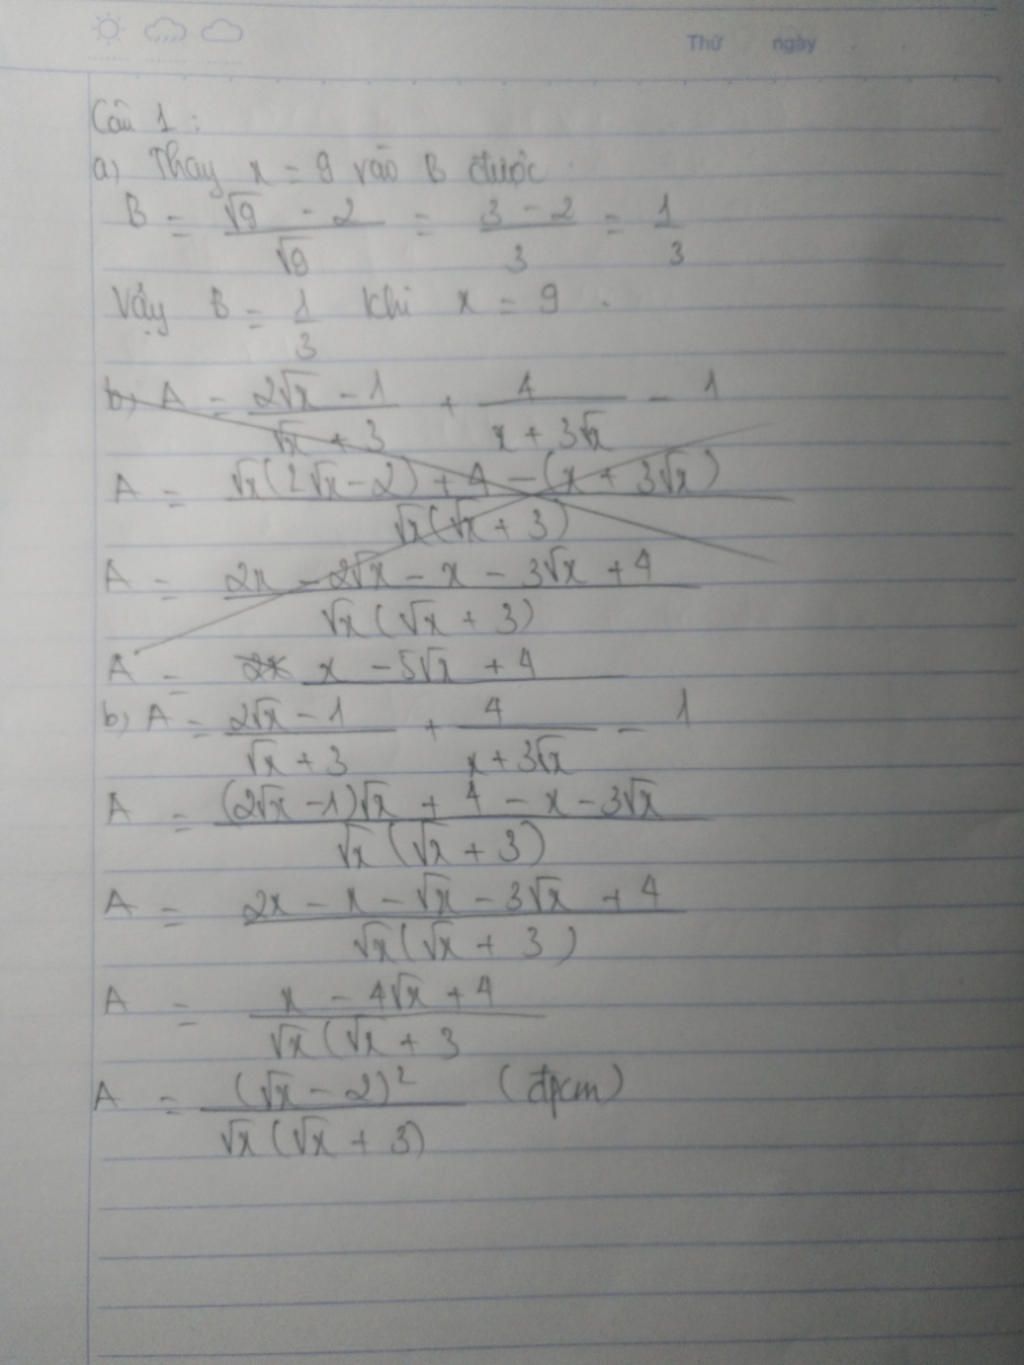 Thứ ngày
Câu 1 :
a) Thay x = 9 vào B được
B = (√9 - 2)/√9 = (3 - 2)/3 = 1/3
Vậy B = 1/3 khi x = 9 .
b) A = (2√x - 1)/(√x + 3) + 4/(x + 3√x) - 1
A = (√x(2√x - 2) + 4 - (x + 3√x))/(√x(√x + 3))
A = (2x - 2√x - x - 3√x + 4)/(√x(√x + 3))
A = 2x x - 5√x + 4
b) A = (2√x - 1)/(√x + 3) + 4/(x + 3√x) - 1
A = ((2√x - 1)√x + 4 - x - 3√x)/(√x(√x + 3))
A = (2x - x - √x - 3√x + 4)/(√x(√x + 3))
A = (x - 4√x + 4)/(√x(√x + 3
A = (√x - 2)²/(√x(√x + 3)) (đpcm)